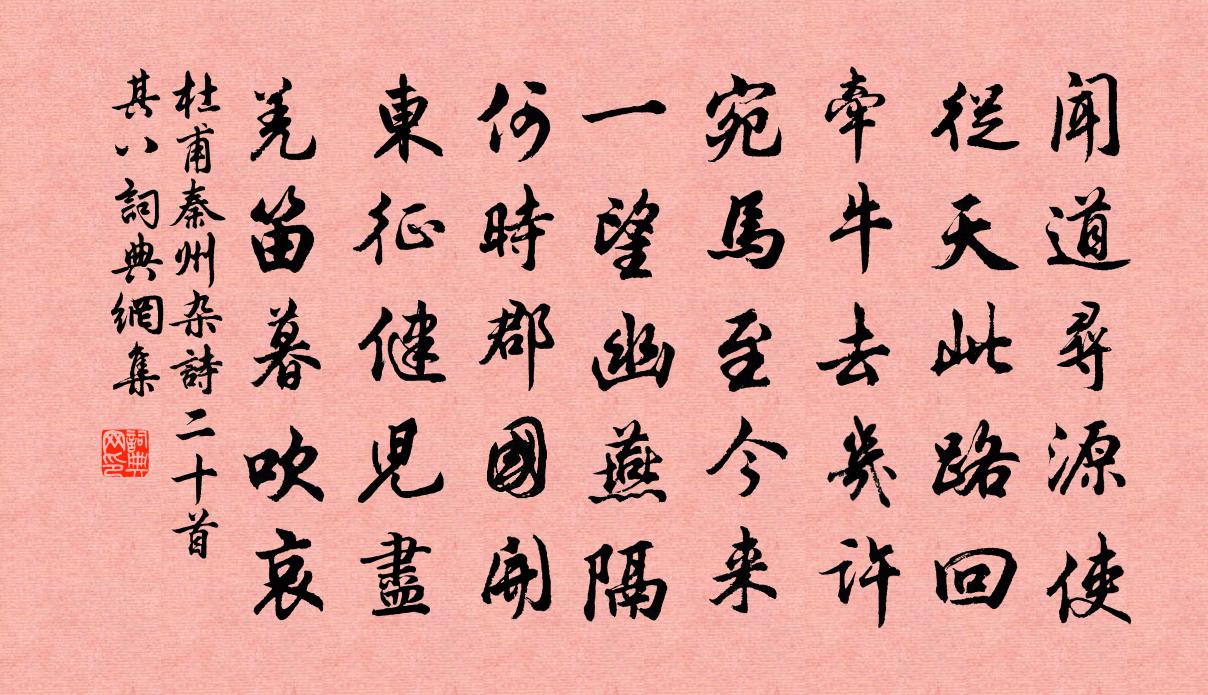 闻道尋源使
従天此路回
牽牛去幾許
宛馬至今来
一望幽燕隔
何時郡國開
東征健児盡
羌笛暮吹哀
杜甫秦州杂詩二十首
其八詞典網集
詞典网印